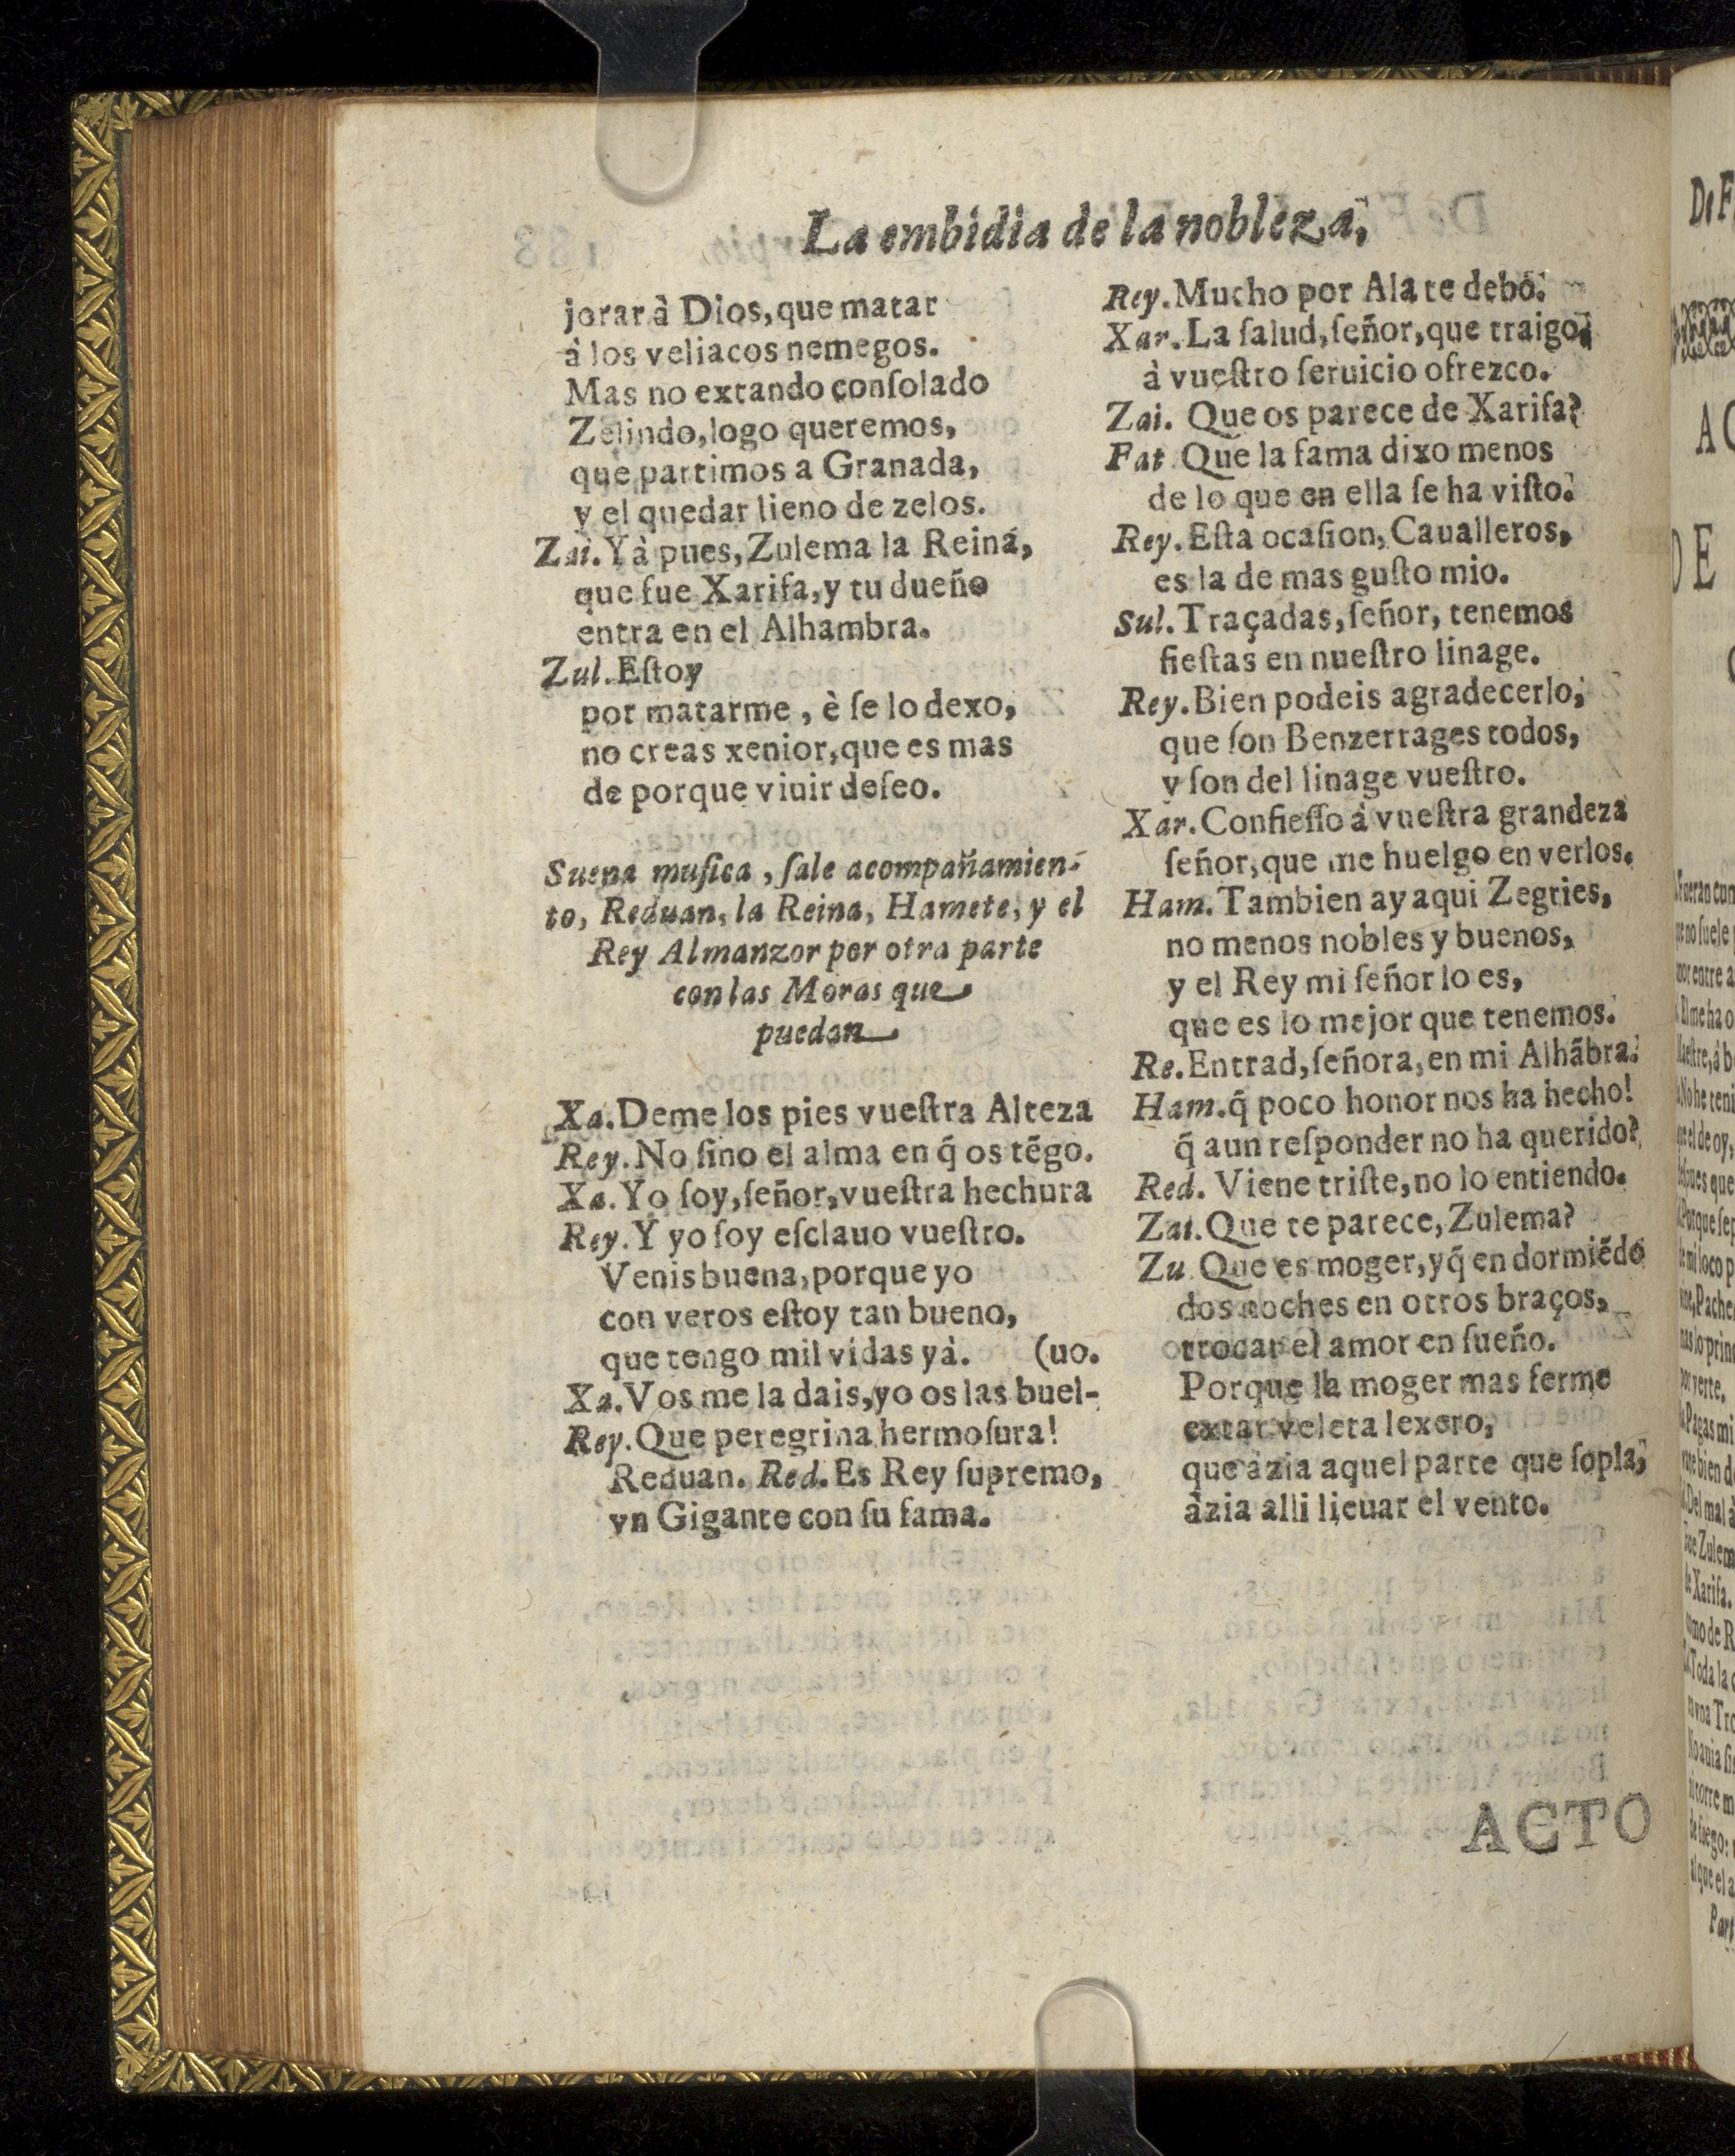 La embidia de la nobleza,
jorar à Dios, que matar
à los veliacos nemegos.
Mas no extando conſolado
Zelindo, logo queremos,
que partimos a Granada,
y el quedar lieno de zelos.
Zai. Yà pues, Zulema la Reina,
que fue Xarifa, y tu dueño
entra en el Alhambra.
Zul. Eſtoy
por matarme, è ſe lo dexo,
no creas xenior, que es mas
de porque viuir deſeo.
Suena muſica, ſale acompañamien-
to, Reduan, la Reina, Hamete, y el
Rey Almanzor por otra parte
con las Moras que
puedan
Xa. Deme los pies vueſtra Alteza
Rey. No ſino el alma en q̃ os tẽgo.
Xa. Yo ſoy, ſeñor, vueſtra hechura
Rey. Y yo ſoy eſclauo vueſtro.
Venis buena, porque yo
con veros eſtoy tan bueno,
que tengo mil vidas yà. (uo.
Xa. Vos me la dais, yo os las buel-
Rey. Que peregrina hermoſura!
Reduan. Red. Es Rey ſupremo,
vn Gigante con ſu fama.
Rey. Mucho por Ala te debo.
Xar. La ſalud, ſeñor, que traigo,
à vueſtro ſeruicio ofrezco.
Zai. Que os parece de Xarifa?
Fat Que la fama dixo menos
de lo que en ella ſe ha viſto.
Rey. Eſta ocaſion, Caualleros,
es la de mas guſto mio.
Sul. Traçadas, ſeñor, tenemos
fieſtas en nueſtro linage.
Rey. Bien podeis agradecerlo,
que ſon Benzerrages todos,
y ſon del linage vueſtro.
Xar. Confieſſo à vueſtra grandeza
ſeñor, que me huelgo en verlos.
Ham. Tambien ay aqui Zegries,
no menos nobles y buenos,
y el Rey mi ſeñor lo es,
que es lo mejor que tenemos.
Re. Entrad, ſeñora, en mi Alhãbra.
Ham. q̃ poco honor nos ha hecho!
q̃ aun reſponder no ha querido?
Red. Viene triſte, no lo entiendo.
Zai. Que te parece, Zulema?
Zu Que es moger, y q̃ en dormiẽdo
dos noches en otros braços,
trocar el amor en ſueño.
Porque la moger mas ferme
extar veleta lexero,
que àzia aquel parte que ſopla,
àzia alli lieuar el vento.
ACTO